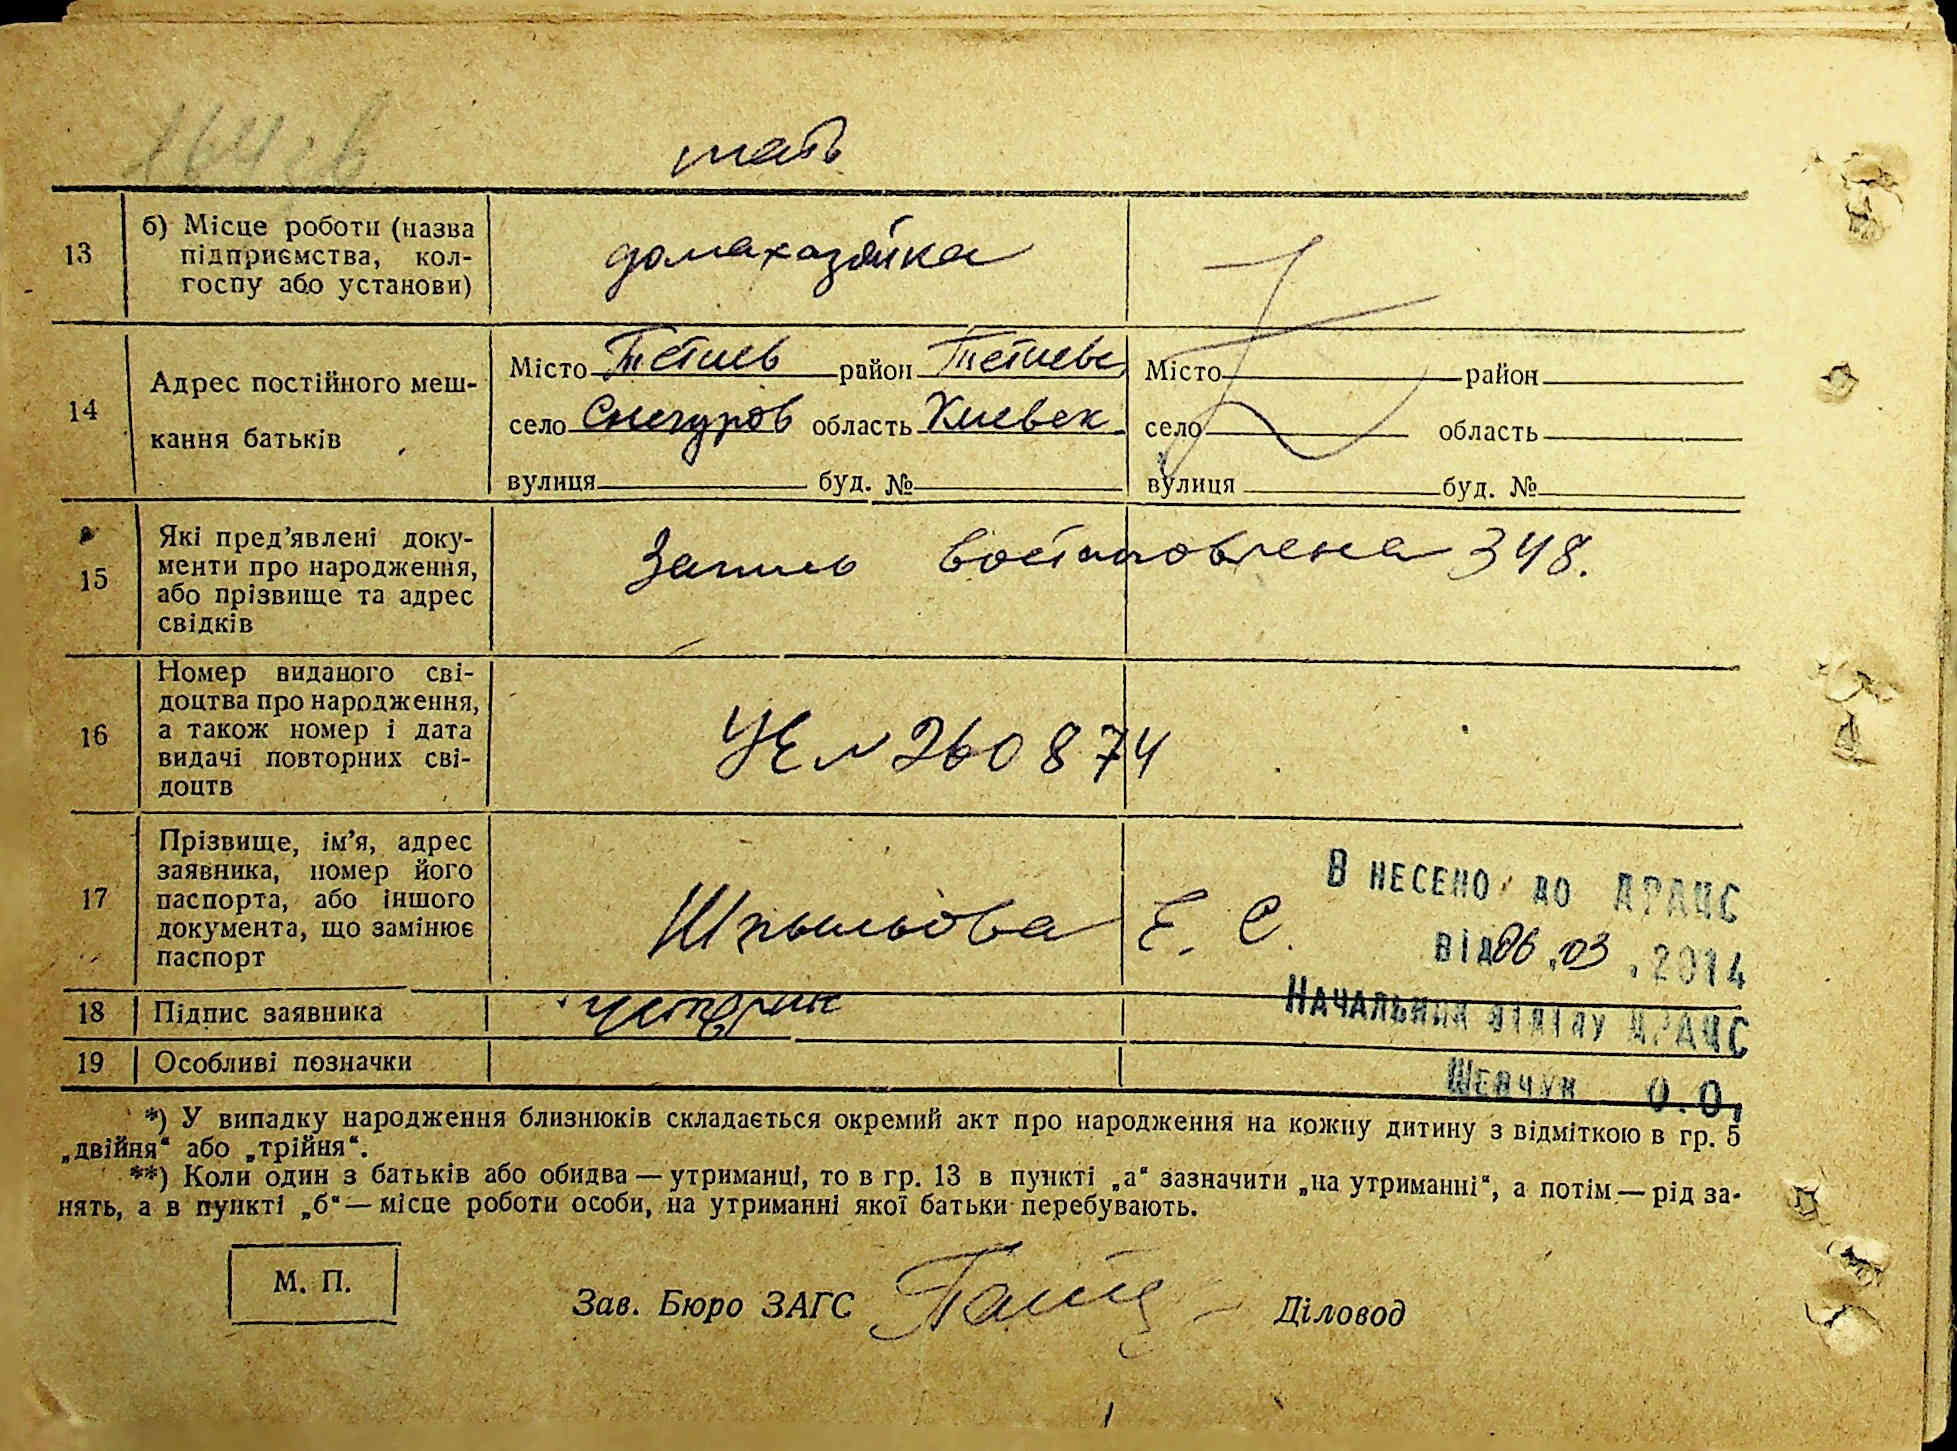 мать
13
б) Місце роботи (назва
підприємства, кол-
госпу або установи)
домахозяйка
14
Адрес постійного меш-
кання батьків
Місто Тетиев район Тетиевс
село Снегуров область Киевск
вулиця буд. №
Місто район
село область
вулиця буд. №
15
Які пред’явлені доку-
менти про народження,
або прізвище та адрес
свідків
Запись востановлена 348.
16
Номер виданого сві-
доцтва про народження,
а також номер і дата
видачі повторних сві-
доцтв
УЕ № 260874
17
Прізвище, ім’я, адрес
заявника, номер його
паспорта, або іншого
документа, що замінює
паспорт
Е. С.
В НЕСЕНО ДО ДРАЦС
ВІД 06.03.2014
НАЧАЛЬНИК ВІДІЛУ ДРАЦС
ШЕВЧУК О.О.
18 Підпис заявника
19 Особливі позначки
*) У випадку народження близнюків складається окремий акт про народження на кожну дитину з відміткою в гр. 5
„двійня“ або „трійня“.
**) Коли один з батьків або обидва — утриманці, то в гр. 13 в пункті „а“ зазначити „на утриманні“, а потім — рід за-
нять, а в пункті „б“ — місце роботи особи, на утриманні якої батьки перебувають.
М. П.
Зав. Бюро ЗАГС
Діловод